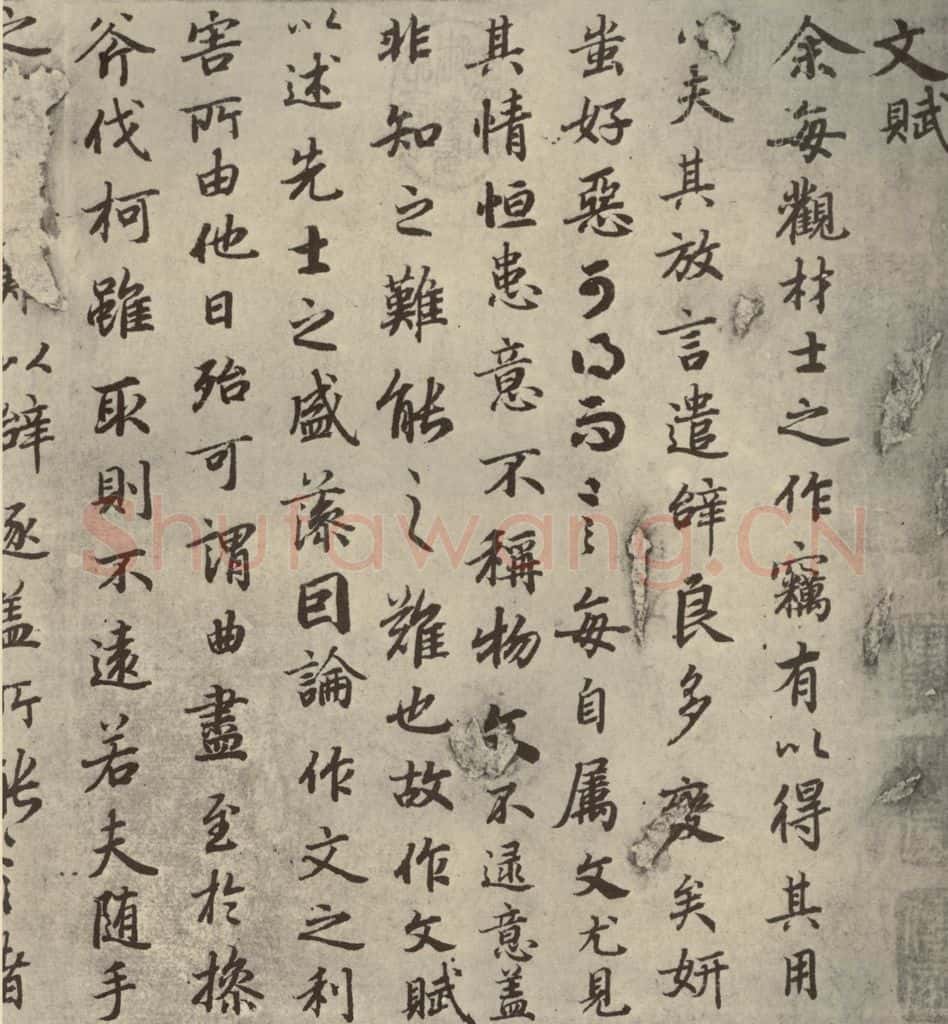 文賦
余每觀材士之作竊有以得其用
心夫其放言遣辭良多變矣妍
蚩好惡可得而言每自属文尤見
其情恒患意不稱物文不逮意盖
非知之難能之難也故作文賦
以述先士之盛藻因論作文之利
害所由他日殆可謂曲盡至於操
斧伐柯雖取則不遠若夫随手
之以辭逐盖所能言者
Shufawang.CN